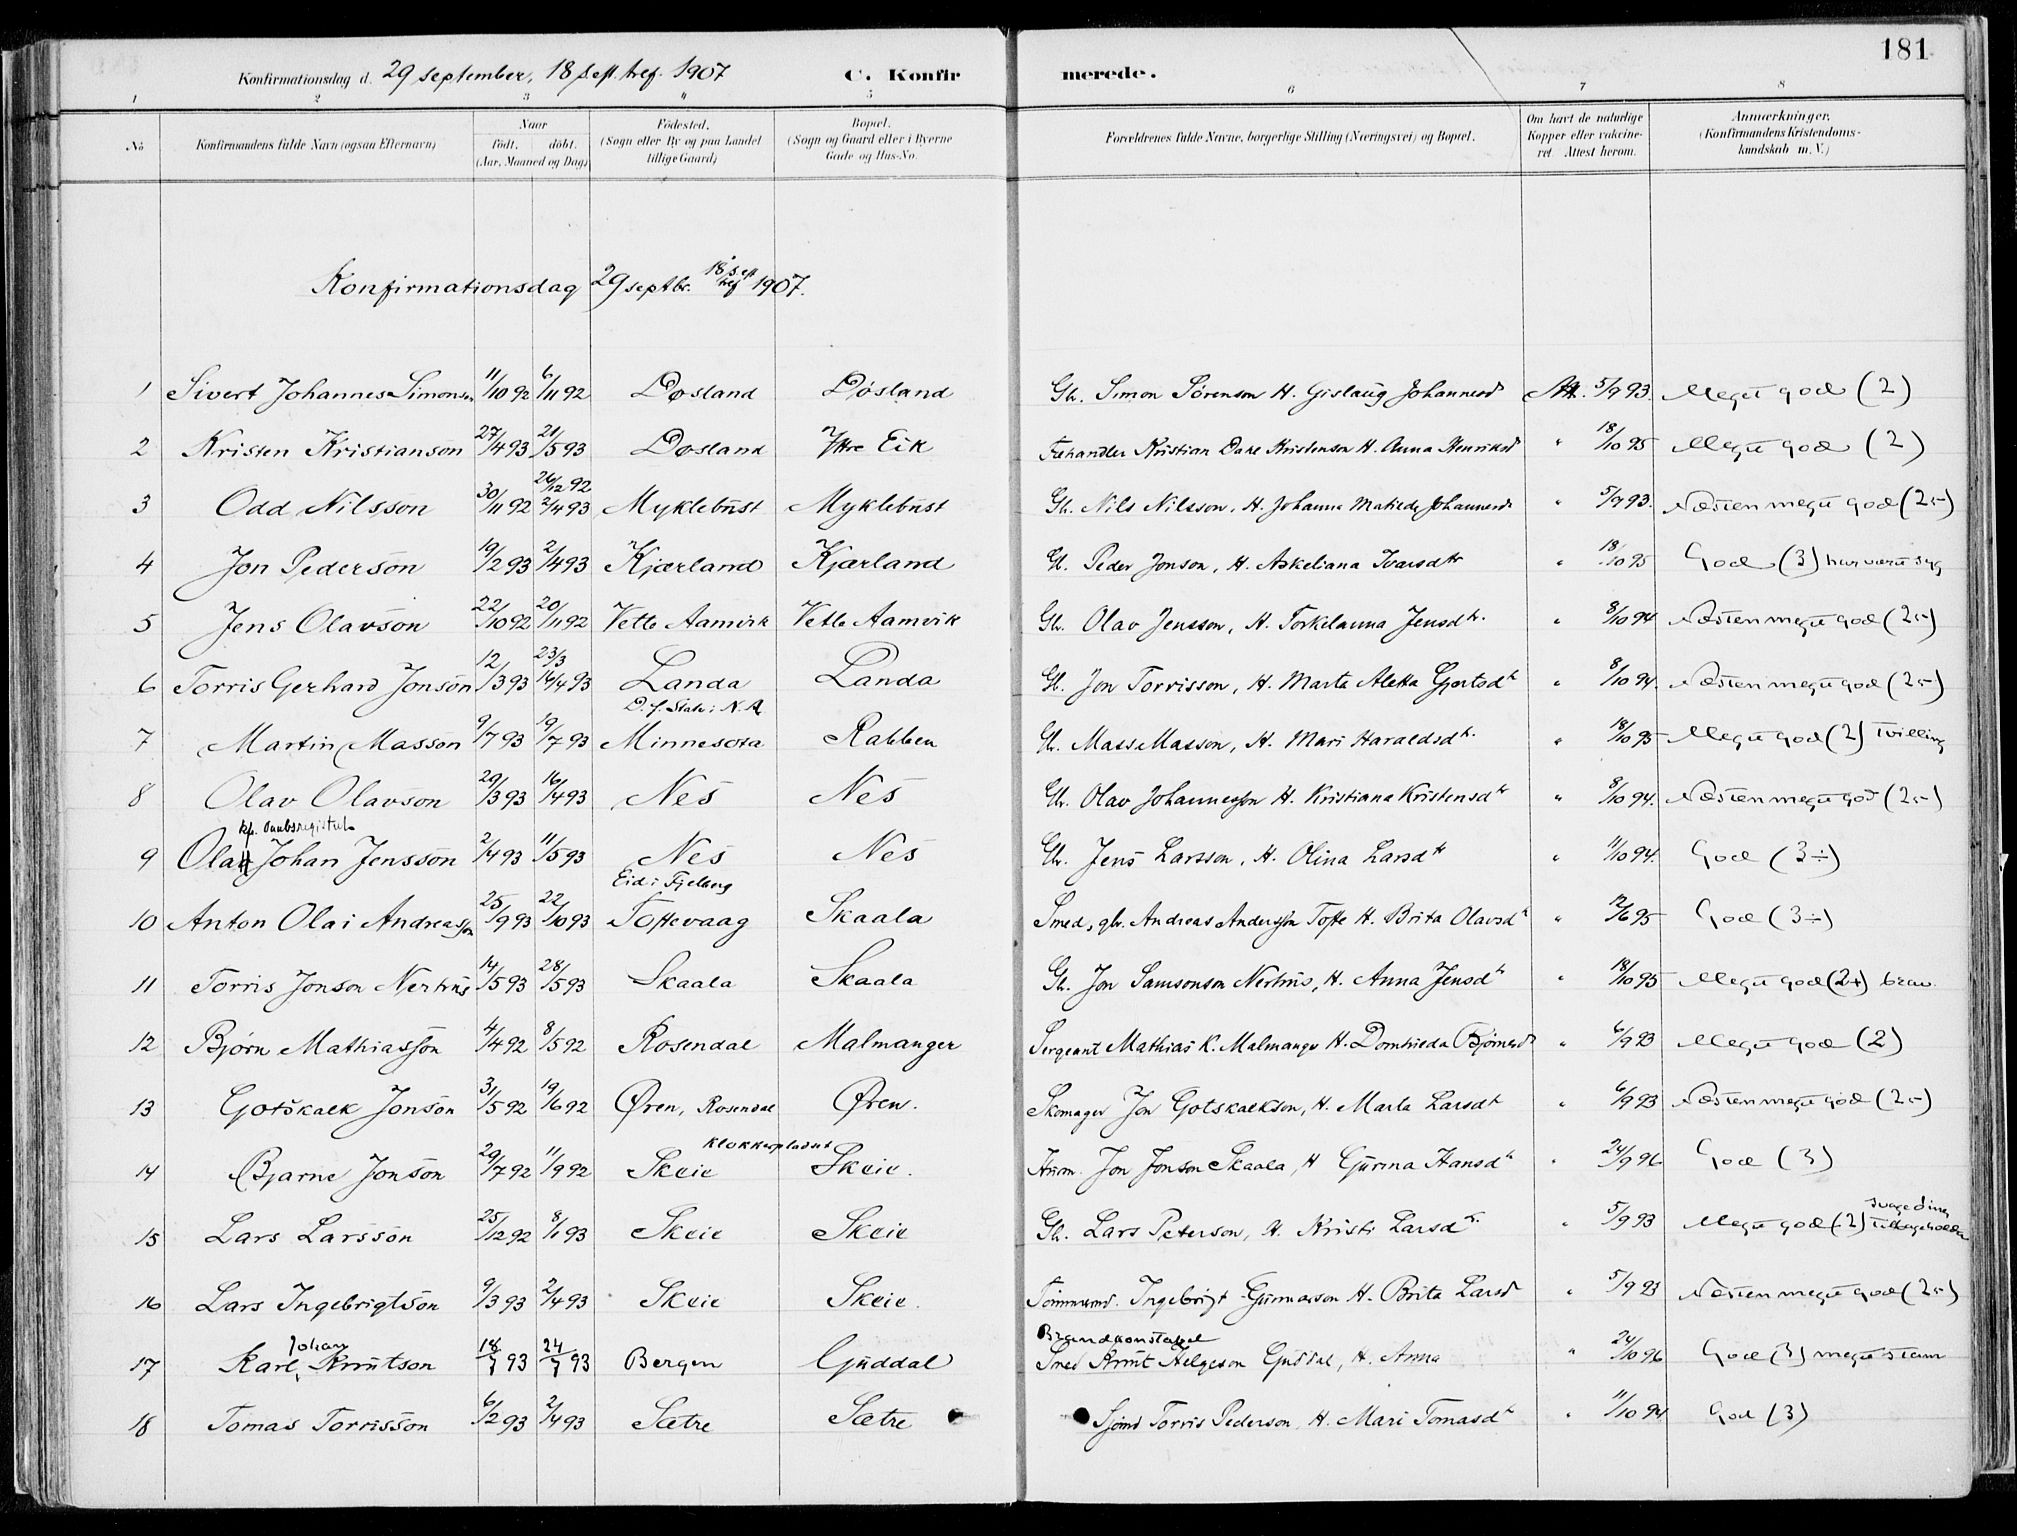 181
Konfirmationsdag d. 29 september, 18 sept. tref. 1907 C. Konfirmerede.
1 2 3 4 5 6 7 8
No Konfirmandens fulde Navn (ogsaa Efternavn) Naar født. døbt. (Aar, Maaned og Dag) Fødested. (Sogn eller By og paa Landet tillige Gaard) Bopæl. (Sogn og Gaard eller i Byerne Gade og Hus-No. Forældrenes fulde Navne, borgerlige Stilling (Næringsvei) og Bopæl. Om havt de naturlige Kopper eller vakcineret. Attest herom. Anmærkninger. (Konfirmandens Kristendomskundskab m. V.)
Konfirmationsdag 29 septbr. 18 sept tref 1907.
1 Sivert Johannes Simonsen 11/10 92 6/11 92 Døsland Døsland Gb. Simon Sørenson H. Gislaug Johannesd Att. 5/9 93. Meget god (2)
2 Kristen Kristianson 27/4 93 21/5 93 Døsland Ytre Eik Fehandler Kristian Dale Kristenson H. Anna Henriksd " 18/10 95 Meget god (2)
3 Odd Nilsson 30/11 92 26/12 92 2/4 93 Myklebust Myklebust Gb. Nils Nilsson, H. Johanna Matilde Johannesd " 5/9 93. Næsten meget god (2÷)
4 Jon Pederson 19/2 93 2/4 93 Kjærland Kjærland Gb. Peder Jonson, H. Askeliana Ivarsdtr " 18/10 95 God (3) har været syg
5 Jens Olavson 22/10 92 20/11 92 Vetle Aamvik Vetle Aamvik Gb. Olav Jensson, H. Torkelanna Jensdtr. " 8/10 94 Næsten meget god (2÷)
6 Torris Gerhard Jonson 12/3 93 23/3 16/4 93 Landa Landa Gb. Jon Torrisson, H. Marta Aletta Gjertsdtr " 8/10 94. Næsten meget god (2÷)
7 Martin Masson 9/7 93 19/7 93 D. f. Stater N. A. Minnesota Rabben Gb. Mass Masson, H. Mari Haraldsdtr. " 18/10 95 Meget god (2) Tvilling
8 Olav Olavson 29/3 93 16/4 93 Nes Nes Gb. Olav Johannesson H. Kristiana Kristensdtr " 8/10 94. Næsten meget god (2÷)
9 Olai Johan Jensson 2/4 93 11/5 93 Nes Nes Gb. Jens Larsson, H. Olina Larsdtr " 11/10 94. God (3÷)
10 Anton Olai Andreasson 25/9 93 22/10 93 Eid i Fjelberg Toftevaag Skaala Smed, gbr. Andreas Andersson Tofte H. Brita Olavsdtr " 12/6 95 God (3÷)
11 Torris Jonson Nerhus 14/5 93 28/5 93 Skaala Skaala Gb. Jon Samsonson Nerhus, H. Anna Jensdtr " 18/10 95 Meget god (2+) brav
12 Bjørn Mathiasson 4/4 92 8/5 92 Rosendal Malmanger Sergeant Mathias K. Malmanger H. Domhieda Bjørnesd " 6/9 93 Meget god (2)
13 Gotskalk Jonson 31/5 92 19/6 92 Øren, Rosendal Øren. Skomager Jon Gotskalkson, H. Marta Larsdtr " 6/9 93 Næsten meget god (2÷)
14 Bjarne Jonson 29/7 92 11/9 92 Skeie Klokkerpladset Skeie. Husm. Jon Jonson Skaala, H Gjurina Hansdtr " 24/9 96 God (3)
15 Lars Larsson 25/12 92 8/1 93 Skeie Skeie Gb. Lars Peterson, H. Kristi Larsdtr. " 5/9 93 Meget god (2)
16 Lars Ingebrigtson 9/3 93 2/4 93 Skeie Skeie. Tømmermd. Ingebrigt Gunnarson H. Brita Larsd " 5/9 93 Næsten meget god (2÷)
17 Karl Johan Knutson 18/7 93 24/7 93 Bergen Guddal Brandkonstabel Smed Knut Helgeson Guddal, H. Anna " 24/10 96 God (3) meget stam
18 Tomas Torrisson 6/2 93 2/4 93 Sætre Sætre Sjømd Torris Pederson, H. Mari Tomasdtr " 11/10 94 God (3)